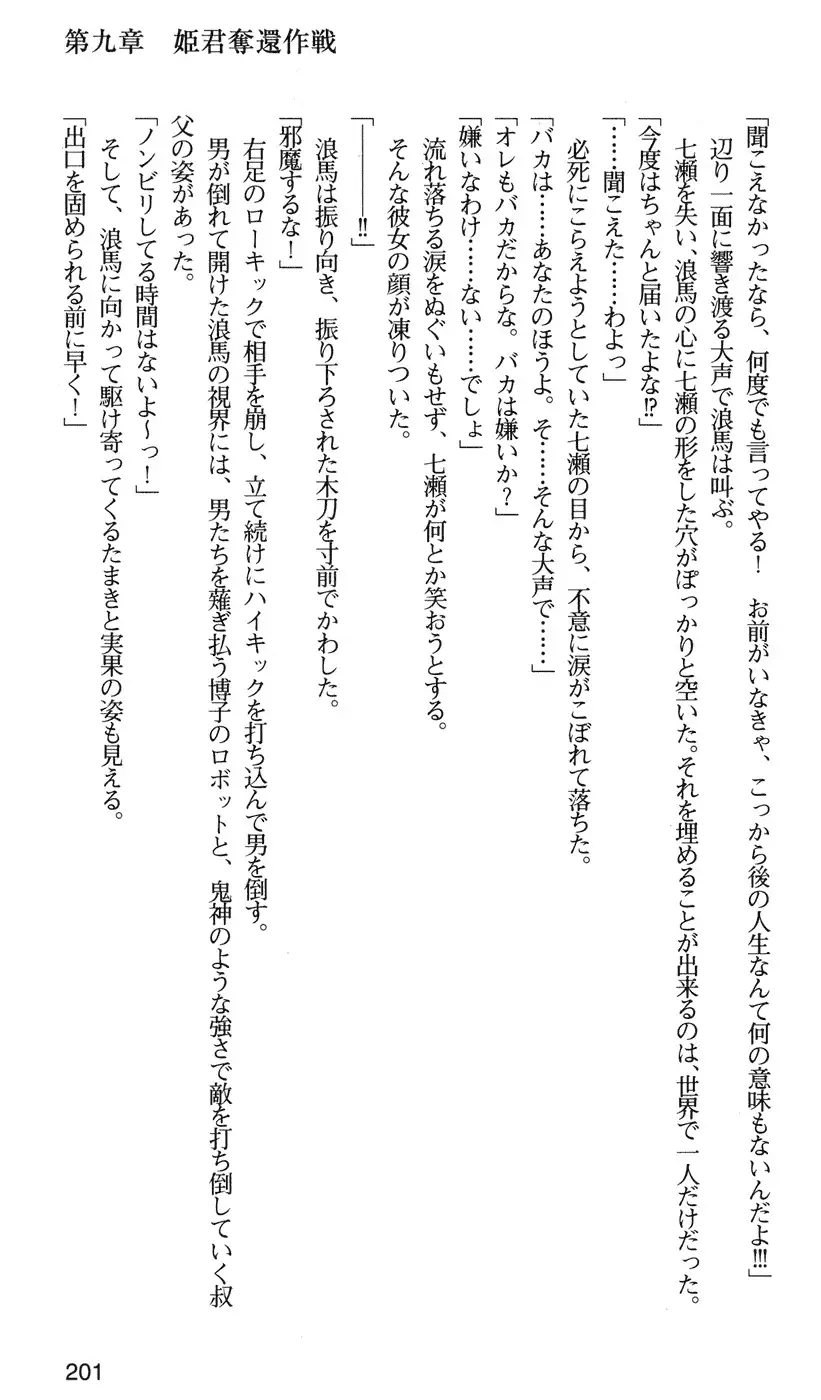 第九章　姫君奪還作戦
「聞こえなかったなら、何度でも言ってやる！　お前がいなきゃ、こっから後の人生なんて何の意味もないんだよ!!!」
辺り一面に響き渡る大声で浪馬は叫ぶ。
七瀬を失い、浪馬の心に七瀬の形をした穴がぽっかりと空いた。それを埋めることが出来るのは、世界で一人だけだった。
「今度はちゃんと届いたよな!?」
「……聞こえた……わよっ」
必死にこらえようとしていた七瀬の目から、不意に涙がこぼれて落ちた。
「バカは……あなたのほうよ。そ……そんな大声で……」
「オレもバカだからな。バカは嫌いか？」
「嫌いなわけ……ない……でしょ」
流れ落ちる涙をぬぐいもせず、七瀬が何とか笑おうとする。
そんな彼女の顔が凍りついた。
「――――!!」
浪馬は振り向き、振り下ろされた木刀を寸前でかわした。
「邪魔するな！」
右足のローキックで相手を崩し、立て続けにハイキックを打ち込んで男を倒す。
男が倒れて開けた浪馬の視界には、男たちを薙ぎ払う博子のロボットと、鬼神のような強さで敵を打ち倒していく叔
父の姿があった。
「ノンビリしてる時間はないよ～っ！」
そして、浪馬に向かって駆け寄ってくるたまきと実果の姿も見える。
「出口を固められる前に早く！」
201